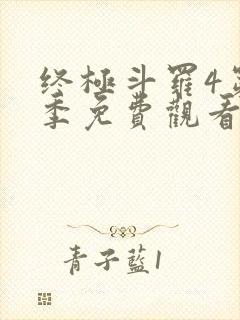 終極斗羅4第
季免費觀看
青子藍1